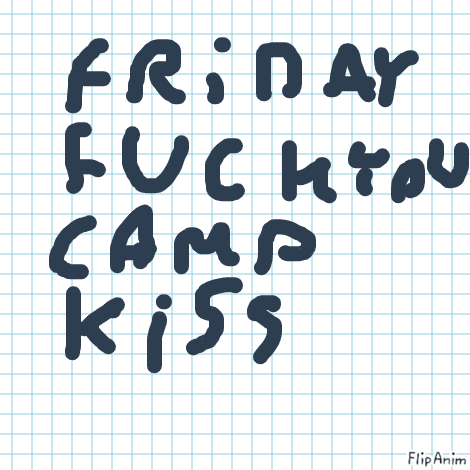 FRiDAY
FUCKYOU
CAMP
KiSS
FlipAnim